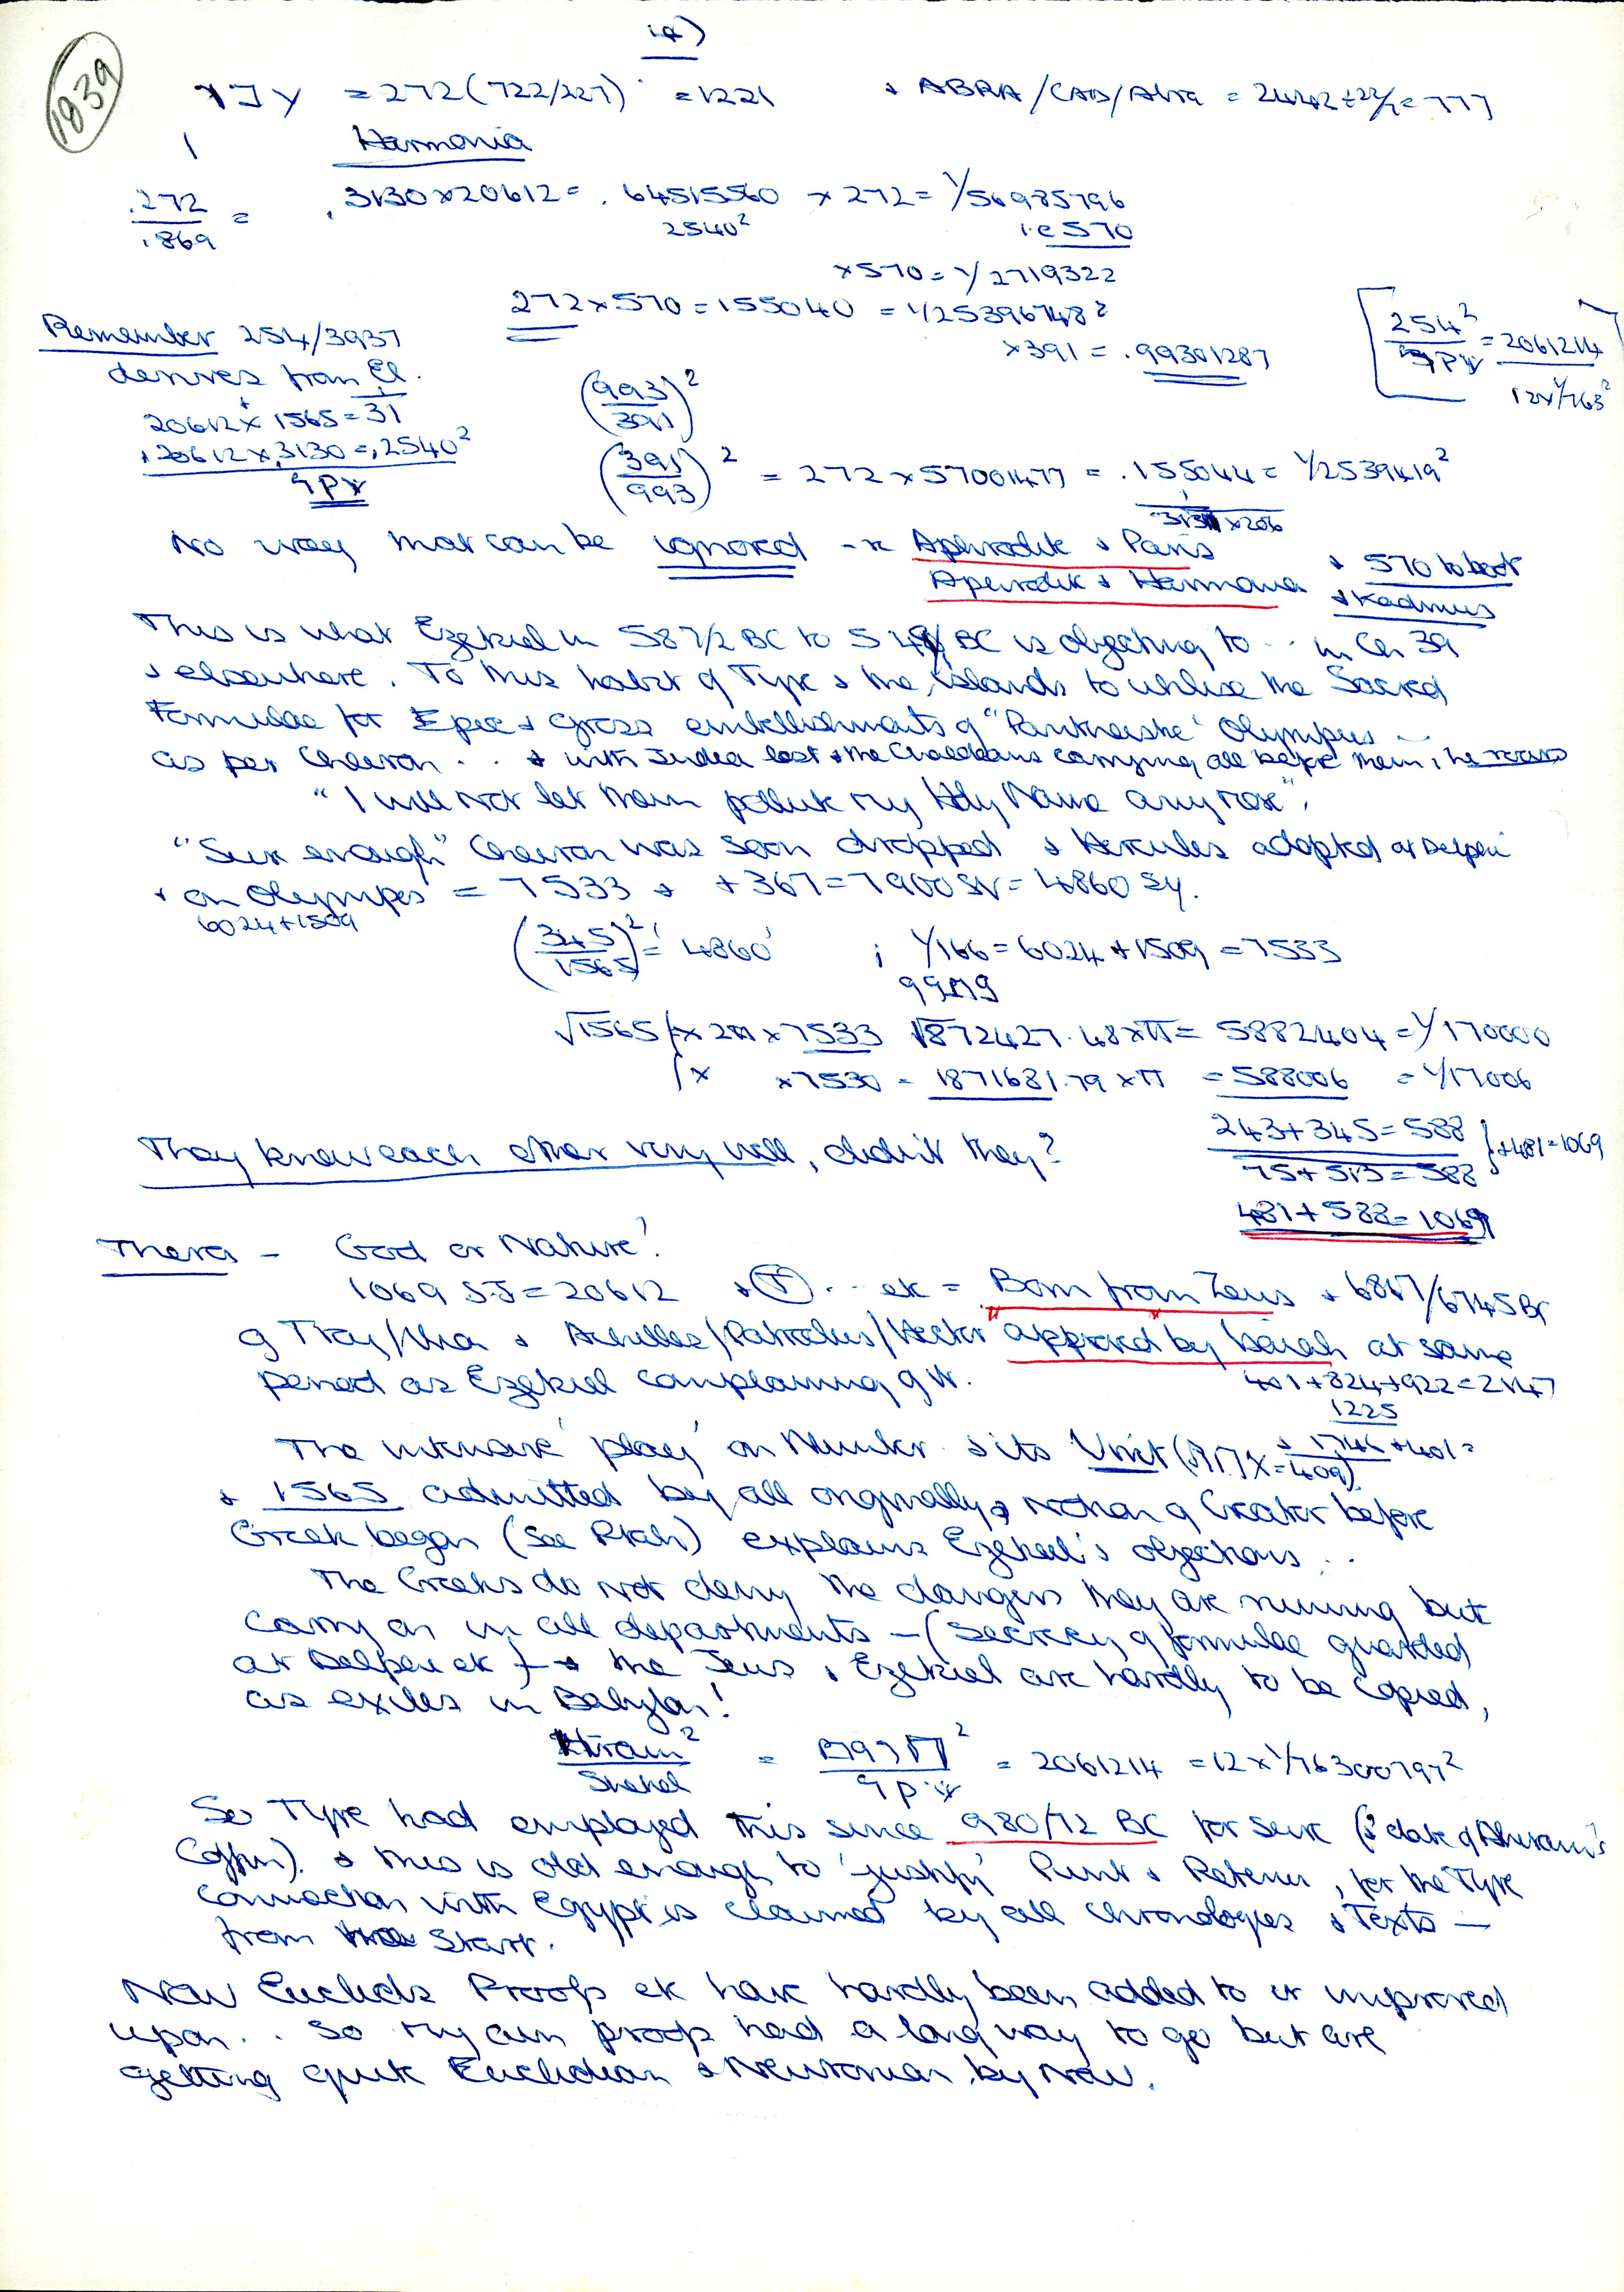 1839
= 272 (722/227) = 1221 + ABRA/CAD/Abra = 2442 ÷ 22/7 = 777
Harmonia
.272/.869 = .3130 x 20612 = .64515560 x 272 = 1/56985796
2540² i.e 570
x 570 = 1/2719322
272 x 570 = 155040 = 1/253967482
x 391 = .99301287
Remember 254/3937
derives from El.
20612 x 1565 = 31
.20612 x .3130 = .2540²
(993/391)²
(391/993)² = 272 x 57001477 = .155044 = 1/2539419²
No way that can be ignored -x Aphrodite & Paris + 570 to boot
Aphrodite & Harmonia & Kadmus
This is what Ezekiel in 587/2 BC to BC is objecting to .. in Ch 39
& elsewhere. To this habit of Tyre & the islands to utilise the Sacred
Formulae for Epic & gross embellishments of "Pantheistic" Olympus ...
as per Cheiron .. & with Judea lost & the Chaldeans carrying all before them, he roars
"I will not let them pollute my Holy Name any more".
"Sure enough" Cheiron was soon dropped & Hercules adopted at Delphi
& on Olympus = 7533 & + 367 = 7900 SV = 4860 Sy.
6024 + 1509
(345/1565)² = '4860' ; 1/166 = 6024 + 1509 = 7533
√1565 x 2π x 7533 1872427.48 x π = 5882404 = 1/170000
x x 7530 = 1871681.79 x π = 588006 = 1/17006
They knew each other very well, didn't they?
243 + 345 = 588
75 + 513 = 588
} + 481 = 1069
481 + 588 = 1069
Thera - God or Nature!
1069 S.J = 20612 .. etc = Born from Zeus & BC
of Troy/ & Achilles/Patroclus/Hector "approved by Isaiah at same
period as Ezekiel complaining of it. 401 + 824 + 922 = 2147
1225
The intensive 'play' on Number & its Unit = 409)
& 1746 + 401 =
& 1565 admitted by all originally & notion of Creator before
Greek began (see Ptah) explains Ezekiel's objections ..
The Greeks do not deny the dangers they are running but
carry on in all departments - (Secrecy of formulae guarded
at Delphi etc) - & the Jews & Ezekiel are hardly to be copied,
as exiles in Babylon!
Hiram²/Shekel = = 2061214 = 12 x 1/76300797²
So Tyre had employed this since 980/72 BC for sure (& date of Ahiram's
Coffin). & this is old enough to 'justify' Punt & Retenu, for the Tyre
connection with Egypt is claimed by all chronologies & Texts -
from the Start.
Now Euclids Proofs etc have hardly been added to or improved
upon .. So my own proofs had a long way to go but are
getting quite Euclidian & Newtonian by now.